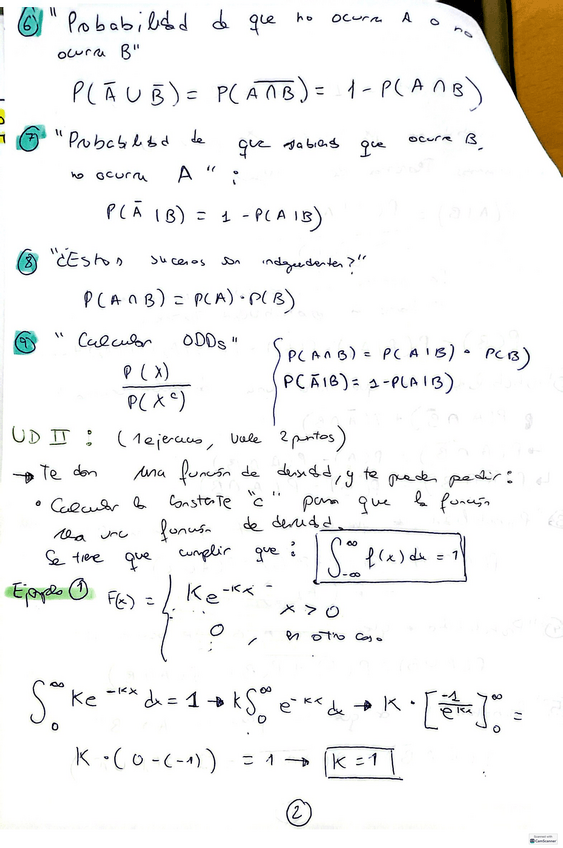 ⑥ "Probabilidad de que no ocurra A o no
ocurra B"
P(Ā ∪ B̄) = P(A̅∩̅B̅) = 1 - P(A ∩ B)
⑦ "Probabilidad de que sabiendo que ocurre B,
no ocurra A":
P(Ā | B) = 1 - P(A | B)
⑧ "¿Estos sucesos son independientes?"
P(A ∩ B) = P(A) · P(B)
⑨ "Calcular ODDs"
P(X)
P(X^c)
P(A ∩ B) = P(A | B) · P(B)
P(Ā | B) = 1 - P(A | B)
UD II: (1 ejercicio, vale 2 puntos)
→ Te dan una función de densidad, y te pueden pedir:
• Calcular la constante "c" para que la función
sea una función de densidad.
Se tiene que cumplir que: ∫_{-∞}^{∞} f(x) dx = 1
Ejemplo ① F(x) = { Ke^{-Kx} x > 0
0, en otro caso
∫_0^∞ Ke^{-Kx} dx = 1 → K ∫_0^∞ e^{-Kx} dx → K · [-1/e^{Kx}]_0^∞ =
K · (0 - (-1)) = 1 → K = 1
②
Scanned with
CS CamScanner